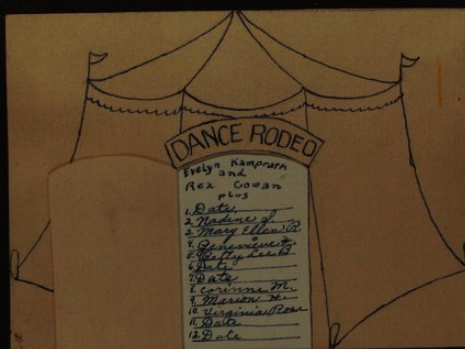 DANCE RODEO
Evelyn Kamprath
and
Rex Cowan
plus
1. Date
2. Nadine S.
3. Mary Ellen R.
4. Genevieve
5. Betty Lee B.
6. Date
7. Date
8. Corinne M.
9. Marion W.
10. Virginia Rose
11. Date
12. Date